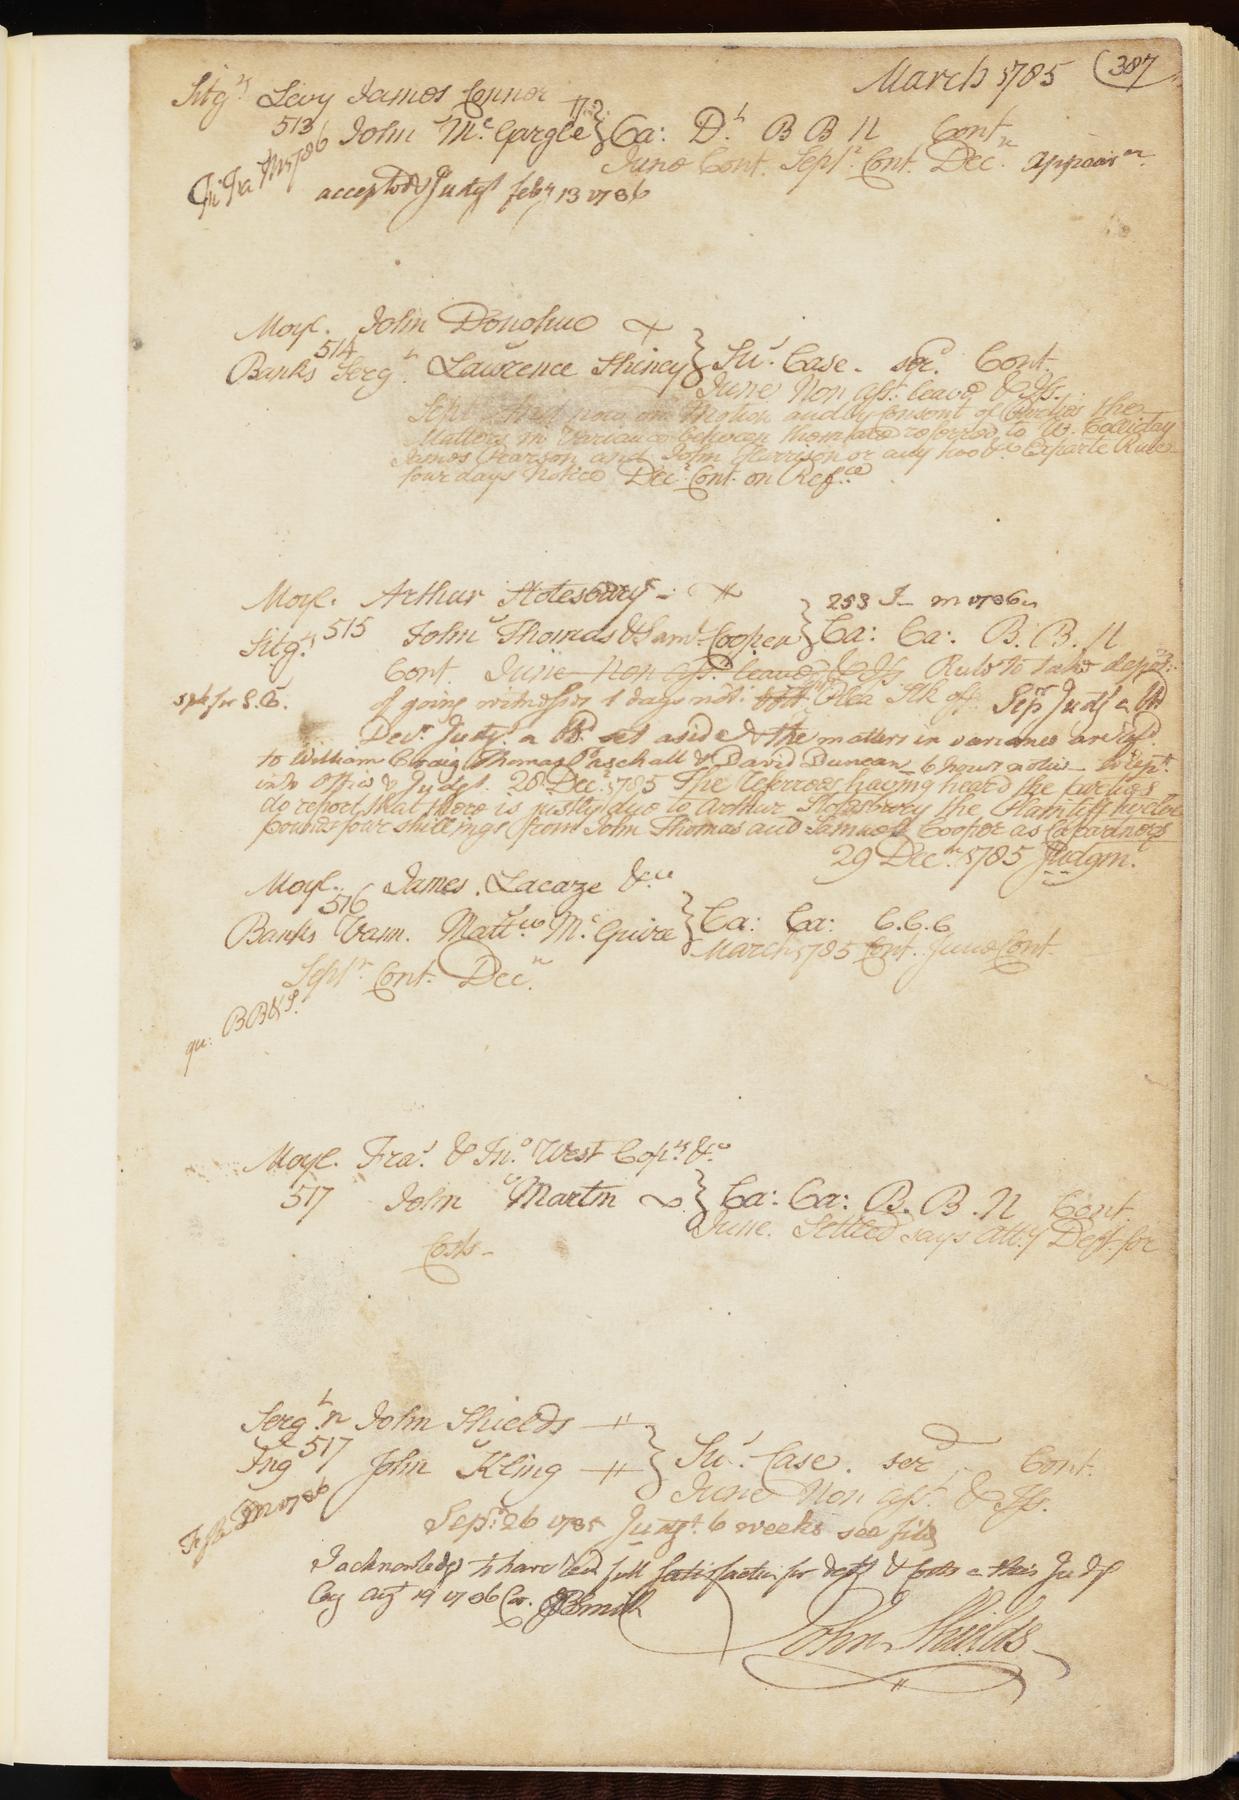 March 1785 (387
Sitg.ts Levy James Connor
513 John Mc. Gargle } Ca: D.t B B N Cont
June Cont. Sept.r Cont. Dec.r appear
accepted Judgt feb.y 13 1786
Moyl. John Donohue
514
Banks Serg.t Lawrence Shiney } Su.s Case. ser.d Cont.
June Non ass.t leave & Iss.
Sept. And now on Motion and by Consent of Parties the
Matters in Variance between them are referred to W. Colliday
James Pearson and John Harrison or any two &c Exparte Rule
four days Notice Dec.r Cont. on Ref.ce
Moyl. Arthur Stotesbury
253 J M 1786
Sitg.ts 515 John Thomas & Sam.l Cooper } Ca: Ca: B. B. N
Cont. June Non ass.t leave & Iss Rule to take depos.
of going witnesses 1 days not: Plea Stk off Sep.r Judg.t
Dec.r Judg.t set aside & the matters in variance are
to William Craig Thomas Paschall & David Duncan 6 hours notice
into Office & Judgt. 28 Dec.r 1785 The Referees having heard the parties
do report that there is justly due to Arthur Stotesbury the Plaintiff twelve
pounds four shillings from John Thomas and Samuel Cooper as Copartners
29 Dec.r 1785 Judgm.t
Moyl. James Lacaze &c.
516
Banks Vann. Matt.w Mc. Guire } Ca: Ca: C.C.C
March 1785 Cont. June Cont.
Sept.r Cont. Dec.r
qu: B B & S.
Moyl. Fra.s & Jn.o West Cop.rs &c
517 John Martin } Ca: Ca: B. B. N Cont.
June. Settled says Att.y Deft. for
Costs
Serg.t John Shields
Ing 517 John Kling } Su.s Case. ser.d Cont.
June Non ass.t & Iss.
Sep.r 26 1785 Judg.t 6 weeks see file
I acknowledge to have rec.d full Satisfaction for debt & costs this Judg
aug 19 1786
John Shields